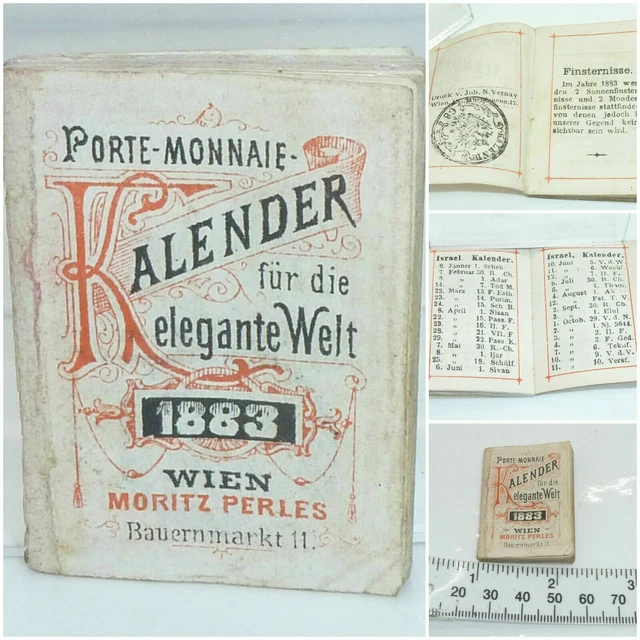 PORTE-MONNAIE-
KALENDER
für die
elegante Welt
1883
WIEN
MORITZ PERLES
Bauernmarkt 11.
Druck v. Joh. N. Vernay
Wien
Finsternisse.
Im Jahre 1883 wer
den 2 Sonnenfinster
nisse und 2 Mondes
finsternisse stattfinden
von denen jedoch i
unserer Gegend kein
sichtbar sein wird.
Israel. Kalender.
9. Jänner 1. Scheb.
7. Februar 30. R. Ch.
8. „ 1. Adar
14. „ 7. Tod M.
22. März 13. F. Esth.
23. „ 14. Purim.
24. „ 15. Sch. B.
8. April 1. Nisan
22. „ 15. Pass. F.
23. „ 16. II. F.
28. „ 21. VII. F
29. „ 22. Pass E.
7. Mai 30. R.-Ch.
8. „ 1. Ijar
25. „ 18. Schülf.
6. Juni 1. Sivan
Israel. Kalender.
10. Juni 5. V. d. W.
11. „ 6. Woch
12. „ 7. II. F.
5. Juli 30. R. Ch.
6. „ 1. Tham.
4. August 1. Ab
12. „ Fst. T. V.
2. Sept. 30. R. Ch.
3. „ 1. Elul
1. Octob. 29. V. d. N.
2. „ 1. Nj. 5644
3. „ 2. II. F.
4. „ 3. F. Ged.
7. „ 6. Tekuf.
10. „ 9. V. d. V.
11. „ 10. Versf.
PORTE-MONNAIE-
KALENDER
für die
elegante Welt
1883
WIEN
MORITZ PERLES
Bauernmarkt 11.
1 2 3
20 30 40 50 60 70